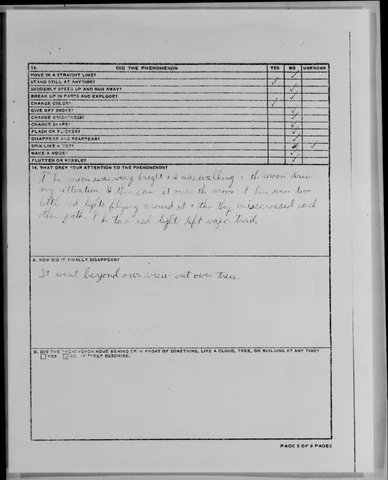 13. DID THE PHENOMENON YES NO UNKNOWN
MOVE IN A STRAIGHT LINE?
STAND STILL AT ANYTIME?
SUDDENLY SPEED UP AND RUN AWAY?
BREAK UP IN PARTS AND EXPLODE?
CHANGE COLOR?
GIVE OFF SMOKE?
CHANGE BRIGHTNESS?
CHANGE SHAPE?
FLASH OR FLICKER?
DISAPPEAR AND REAPPEAR?
SPIN LIKE A TOP?
MAKE A NOISE?
FLUTTER OR WOBBLE?
14. WHAT DREW YOUR ATTENTION TO THE PHENOMENON?
The moon was very bright & I was walking & the moon drew
my attention & then saw it over the moon. It has were two
little red lights flying around it & they crisscrossed each
other path. The two red light left vapor trail.
A. HOW DID IT FINALLY DISAPPEAR?
It went beyond our view out over trees.
B. DID THE PHENOMENON MOVE BEHIND OR IN FRONT OF SOMETHING, LIKE A CLOUD, TREE, OR BUILDING AT ANY TIME?
YES NO. IF "YES," DESCRIBE.
PAGE 3 OF 9 PAGES